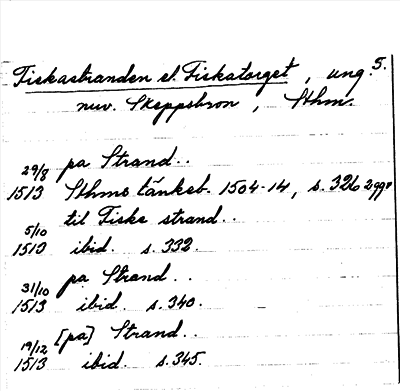 Fiskastranden el. Fiskatorget, ung. 5.
nuv. Skeppsbron, Sthm.
29/8 pa Strand..
1513 Sthms tänkeb. 1504-14, s. 326 2ggr
5/10 til Fiske strand..
1513 ibid. s. 332.
31/10 pa Strand..
1513 ibid. s. 340.
19/12 [pa] Strand..
1513 ibid. s. 345.